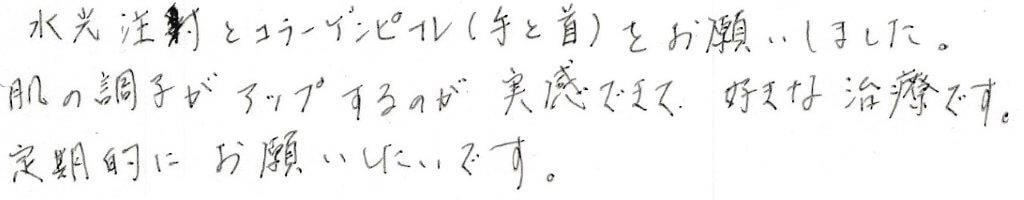 水光注射とコラーゲンピール(手と首)をお願いしました。
肌の調子がアップするのが実感できて、好きな治療です。
定期的にお願いしたいです。